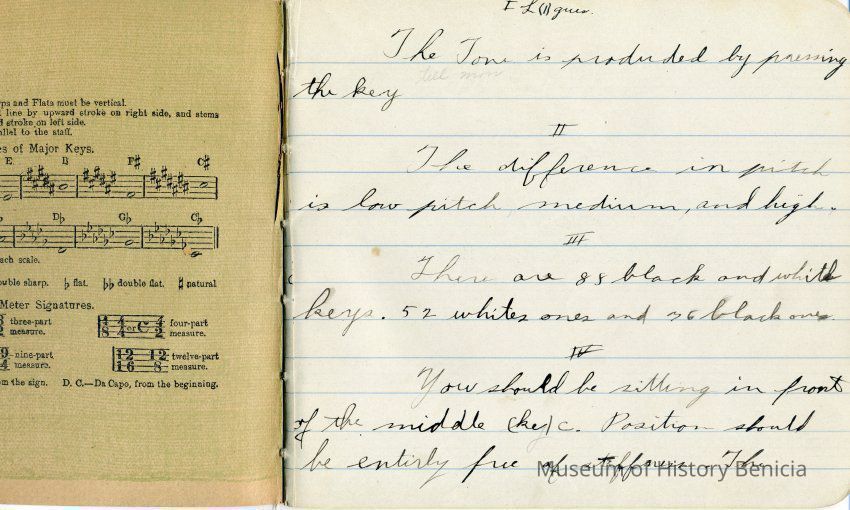 rps and Flats must be vertical.
l line by upward stroke on right side, and stems
d stroke on left side.
allel to the staff.
es of Major Keys.
E B F♯ C♯
D♭ G♭ C♭
ach scale.
ouble sharp. ♭ flat. ♭♭ double flat. ♯ natural
Meter Signatures.
three-part measure.
4 4 or C 4
8 4 2
four-part measure.
9 nine-part
4 measure.
12 12
16 8
twelve-part measure.
om the sign. D. C.—Da Capo, from the beginning.
I
The Tone is produded by pressing
the key
II
The difference in pitch
is low pitch, medium, and high.
III
There are 88 black and white
keys. 52 whites ones and 36 black ones.
IV
You should be sitting in front
of the middle (key) c. Position should
be entirly free of stiffness. The
Museum of History Benicia